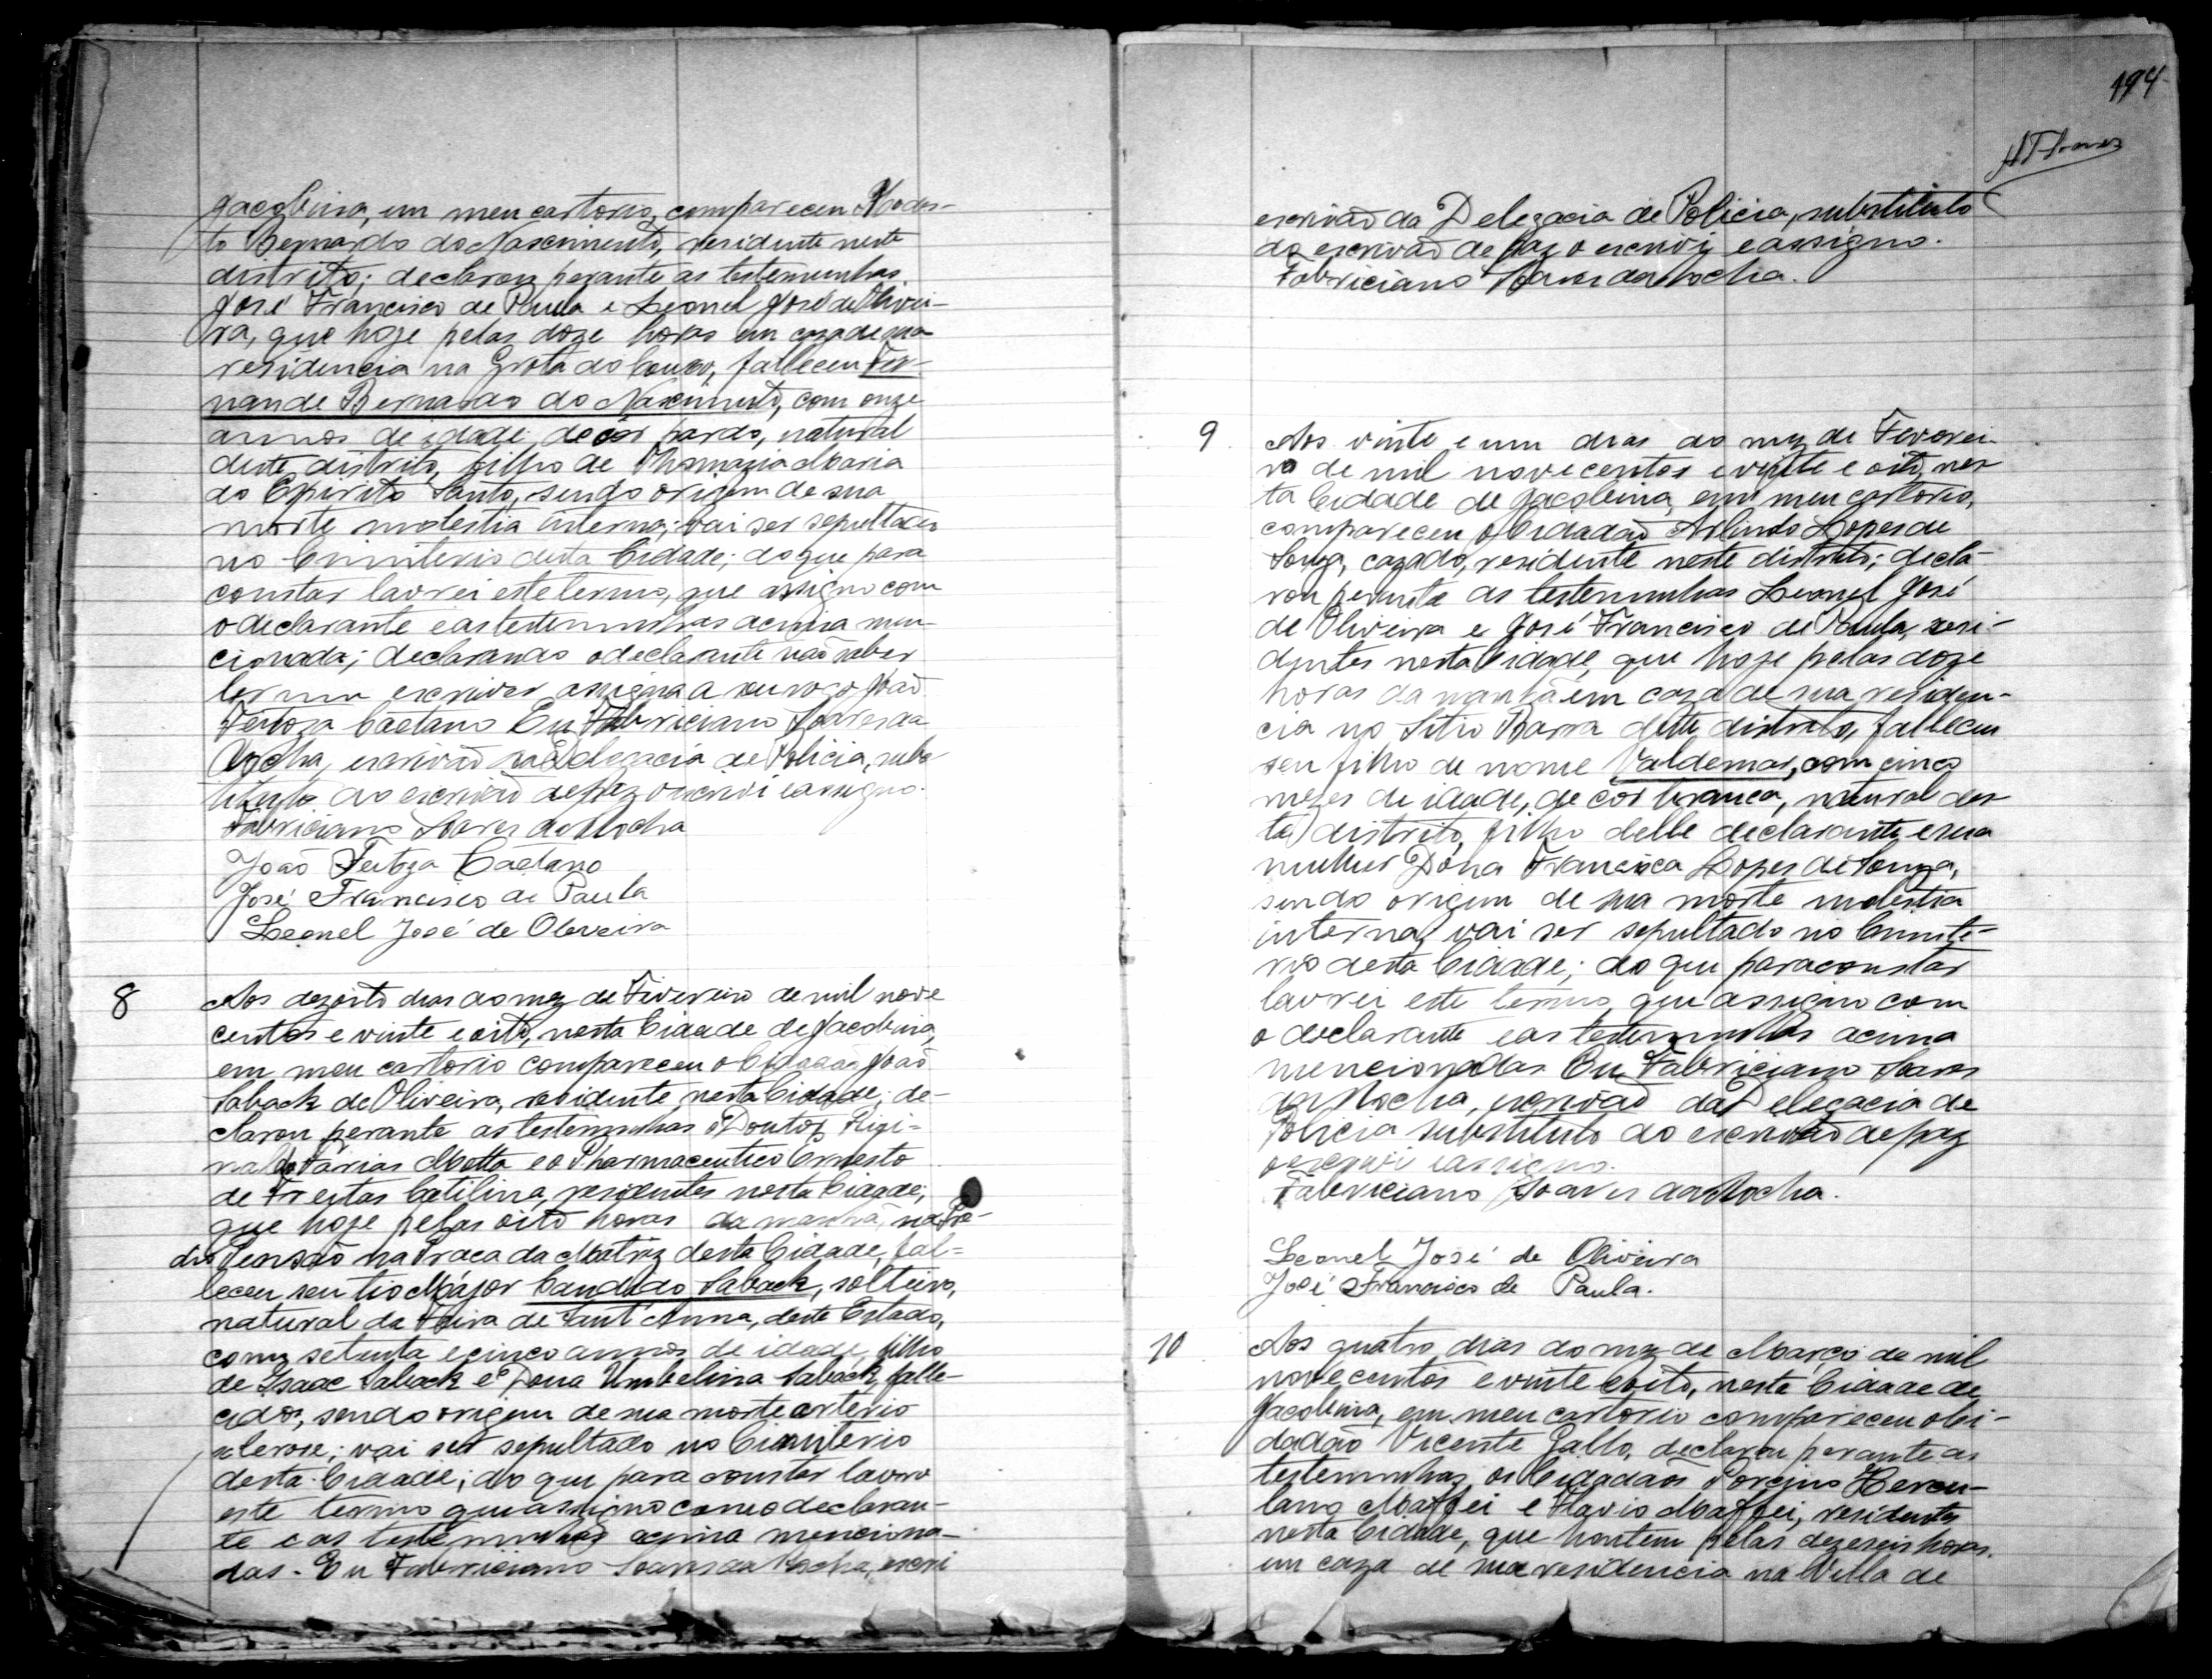 Jacobina, em meu cartorio, compareceu Modes-
to Bernardo do Nascimento, residente neste
distrito; declarou perante as testemunhas
José Francisco de Paula e Leonel José de Olivei-
ra, que hoje pelas doze horas em caza de sua
residencia na Grota do Couxo, falleceu Fer-
nande Bernardo do Nascimento, com onze
annos de idade, de côr pardo, natural
deste distrito, filho de Maria
do Espirito Santo, sendo origem de sua
morte molestia interna; vai ser sepultado
no Cimiterio desta Cidade; do que para
constar lavrei este termo, que assigno com
o declarante e as testemunhas acima men-
cionada; declarando o declarante não saber
ler nem escrever assigna a seu rogo João
Feitoza Caetano Eu Fabriciano Soares da
Rocha, escrivão da Delegacia de Policia, subs
tituto do escrivão de paz o escrevi e assigno.
Fabriciano Soares da Rocha
João Feitoza Caetano
José Francisco de Paula
Leonel José de Oliveira
8 Aos dezoito dias do mez de Fevereiro de mil nove
centos e vinte e oito, nesta Cidade de Jacobina,
em meu cartorio compareceu o Cidadão João
Saback de Oliveira, residente nesta Cidade; de-
clarou perante as testemunhas o Doutor Rigi-
naldo Farias Motta e o Pharmaceutico Ernesto
de Freitas Catilina, residentes nesta Cidade;
que hoje pelas oito horas da manhã, no Pre-
dio Pensão na Praça da Matriz desta Cidade, fal-
leceu seu tio Major Candido Saback, solteiro,
natural da Feira de Sant'Anna, deste Estado,
com setenta e cinco annos de idade, filho
de Isaac Saback e Dona Umbelina Saback, falle-
cidos, sendo origem de sua morte arterio
sclerose; vai ser sepultado no Cimiterio
desta Cidade; do que para constar lavro
este termo que assigno com o declaran-
te e as testemunhas acima menciona-
das. Eu Fabriciano Soares da Rocha, escri
194
escrivão da Delegacia de Policia, substituto
do escrivão de paz o escrevi e assigno.
Fabriciano Soares da Rocha.
9 Aos vinte e um dias do mez de Feverei
ro de mil novecentos e vinte e oito, nes
ta Cidade de Jacobina, em meu cartorio,
compareceu o Cidadão Arlindo Lopes de
Souza, cazado, residente neste distrito; decla-
rou perante as testemunhas Leonel José
de Oliveira e José Francisco de Paula, resi-
dentes nesta Cidade, que hoje pelas doze
horas da manhã em caza de sua residen-
cia no Sitio Barra deste distrito, falleceu
seu filho de nome Valdemar, com cinco
mezes de idade, de côr branca, natural des
te distrito, filho delle declarante e sua
mulher Dona Francisca Lopes de Souza,
sendo origem de sua morte molestia
interna; vai ser sepultado no Cimite-
rio desta Cidade; do que para constar
lavrei este termo, que assigno com
o declarante e as testemunhas acima
mencionadas. Eu Fabriciano Soares
da Rocha, escrivão da Delegacia de
Policia substituto do escrivão de paz
o escrevi e assigno.
Fabriciano Soares da Rocha.
Leonel José de Oliveira
José Francisco de Paula.
10 Aos quatro dias do mez de Março de mil
novecentos e vinte e oito, nesta Cidade de
Jacobina, em meu cartorio compareceu o Ci-
dadão Vicente Gallo, declarou perante as
testemunhas os Cidadãos Porcino Hercu-
lano Maffei e Flavio Maffei, residentes
nesta Cidade, que hontem pelas dezeseis horas.
em caza de sua residencia na Villa de